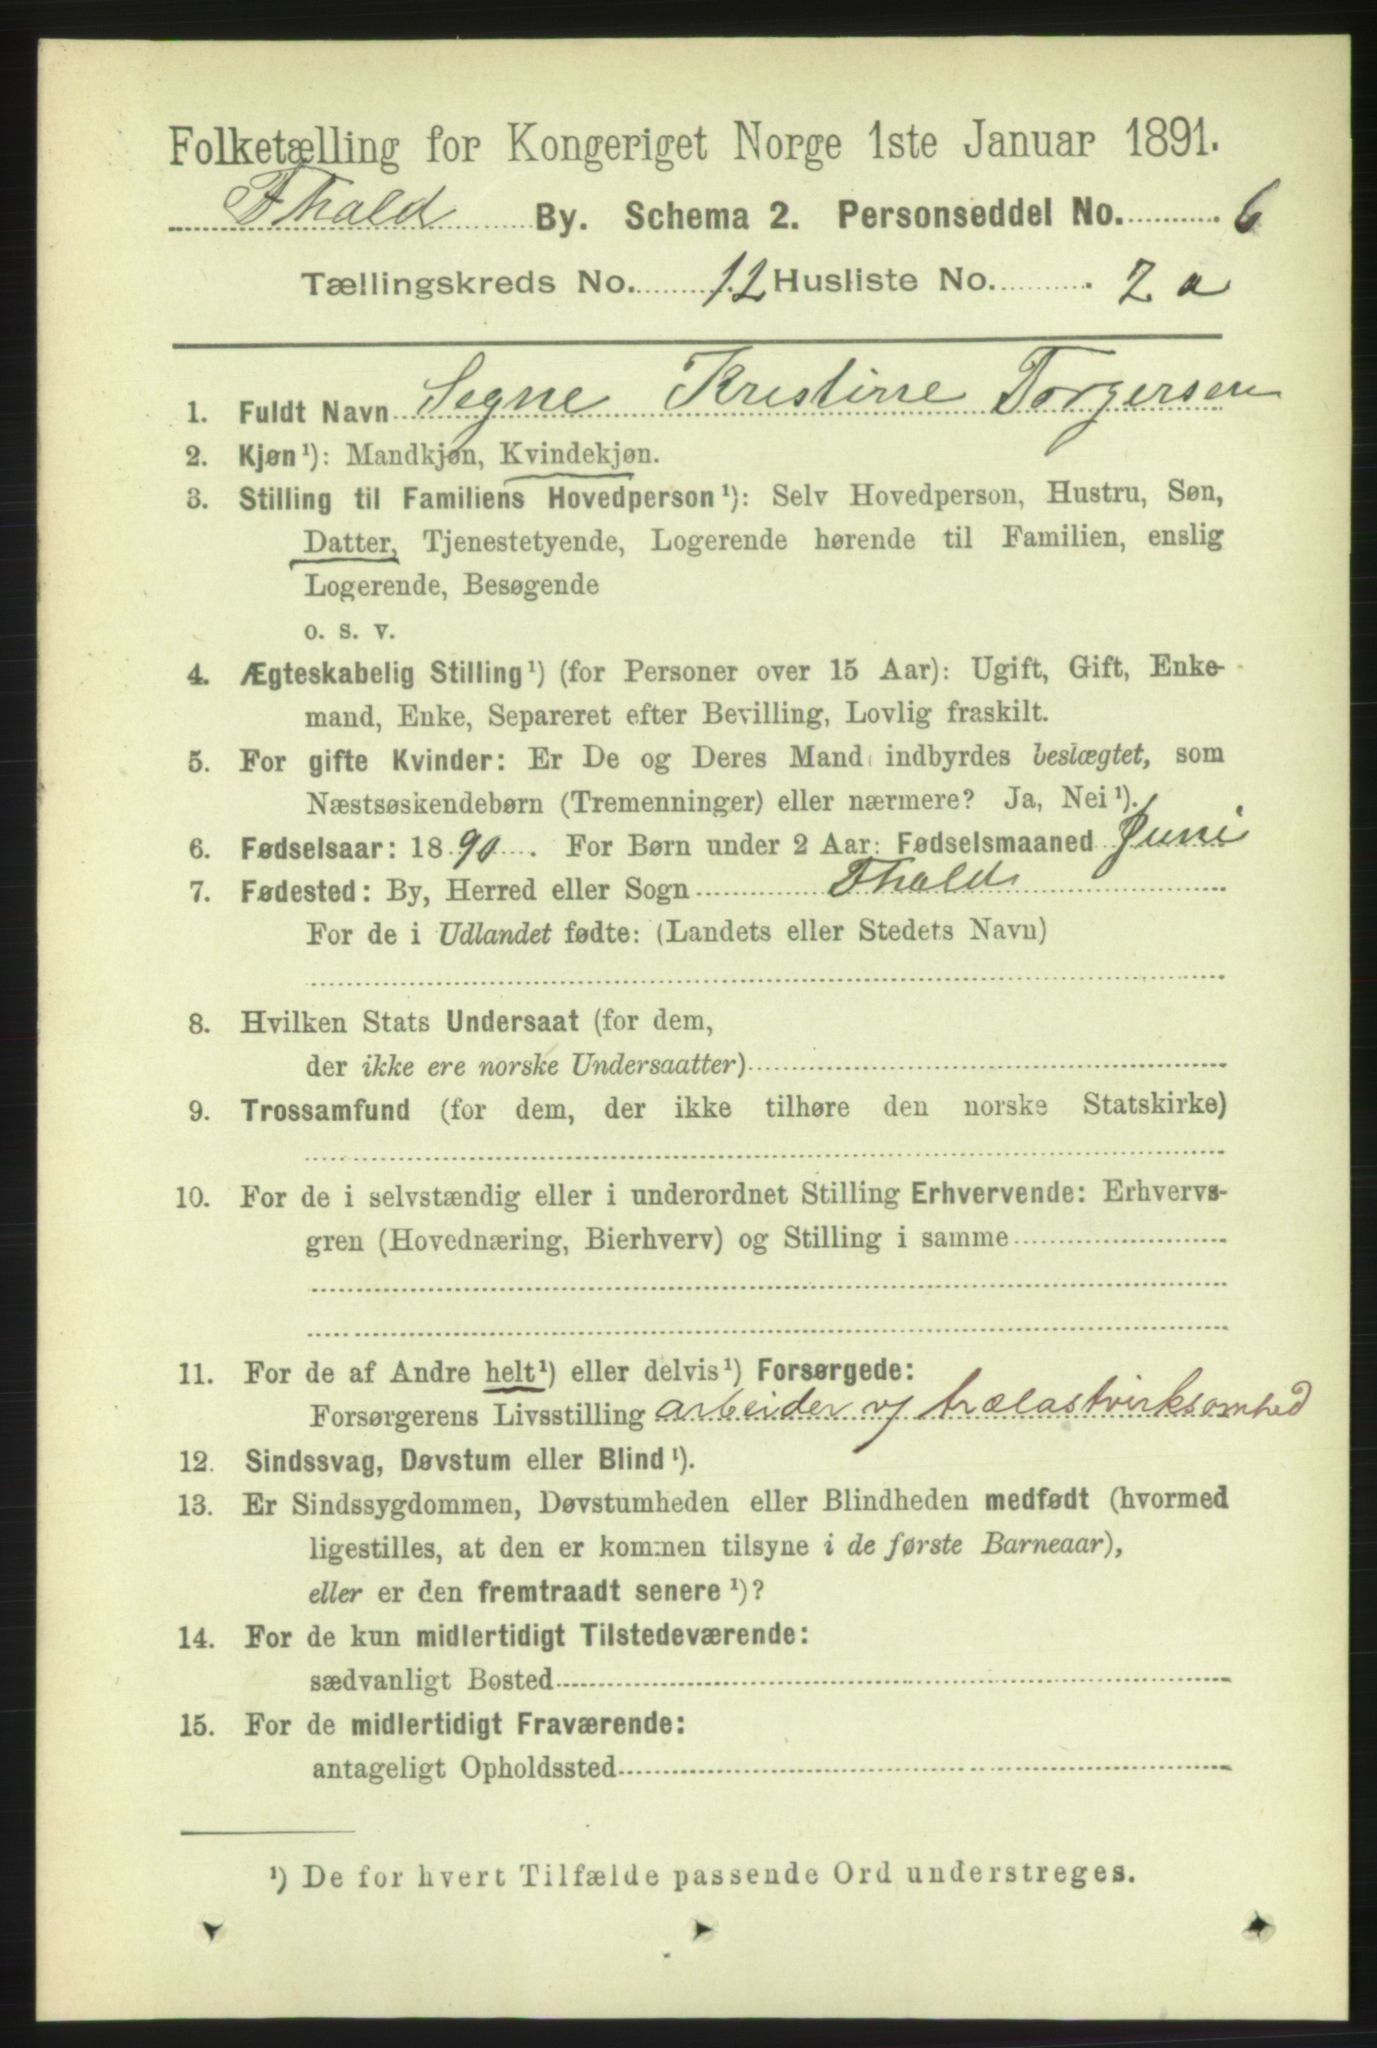 Folketælling for Kongeriget Norge 1ste Januar 1891.
Fhald By. Schema 2. Personseddel No. 6
Tællingskreds No. 12 Husliste No. 2 a
1. Fuldt Navn Segne Kristine Torgersen
2. Kjøn¹): Mandkjøn, Kvindekjøn.
3. Stilling til Familiens Hovedperson¹): Selv Hovedperson, Hustru, Søn,
Datter, Tjenestetyende, Logerende hørende til Familien, enslig
Logerende, Besøgende
o. s. v.
4. Ægteskabelig Stilling¹) (for Personer over 15 Aar): Ugift, Gift, Enke-
mand, Enke, Separeret efter Bevilling, Lovlig fraskilt.
5. For gifte Kvinder: Er De og Deres Mand indbyrdes beslægtet, som
Næstsøskendebørn (Tremenninger) eller nærmere? Ja, Nei¹).
6. Fødselsaar: 1890. For Børn under 2 Aar: Fødselsmaaned Juni
7. Fødested: By, Herred eller Sogn Fhald
For de i Udlandet fødte: (Landets eller Stedets Navn)
8. Hvilken Stats Undersaat (for dem,
der ikke ere norske Undersaatter)
9. Trossamfund (for dem, der ikke tilhøre den norske Statskirke)
10. For de i selvstændig eller i underordnet Stilling Erhvervende: Erhvervs-
gren (Hovednæring, Bierhverv) og Stilling i samme
11. For de af Andre helt¹) eller delvis¹) Forsørgede:
Forsørgerens Livsstilling arbeider v/ trælastvirksomhed
12. Sindssvag, Døvstum eller Blind¹).
13. Er Sindssygdommen, Døvstumheden eller Blindheden medfødt (hvormed
ligestilles, at den er kommen tilsyne i de første Barneaar),
eller er den fremtraadt senere¹)?
14. For de kun midlertidigt Tilstedeværende:
sædvanligt Bosted
15. For de midlertidigt Fraværende:
antageligt Opholdssted
¹) De for hvert Tilfælde passende Ord understreges.